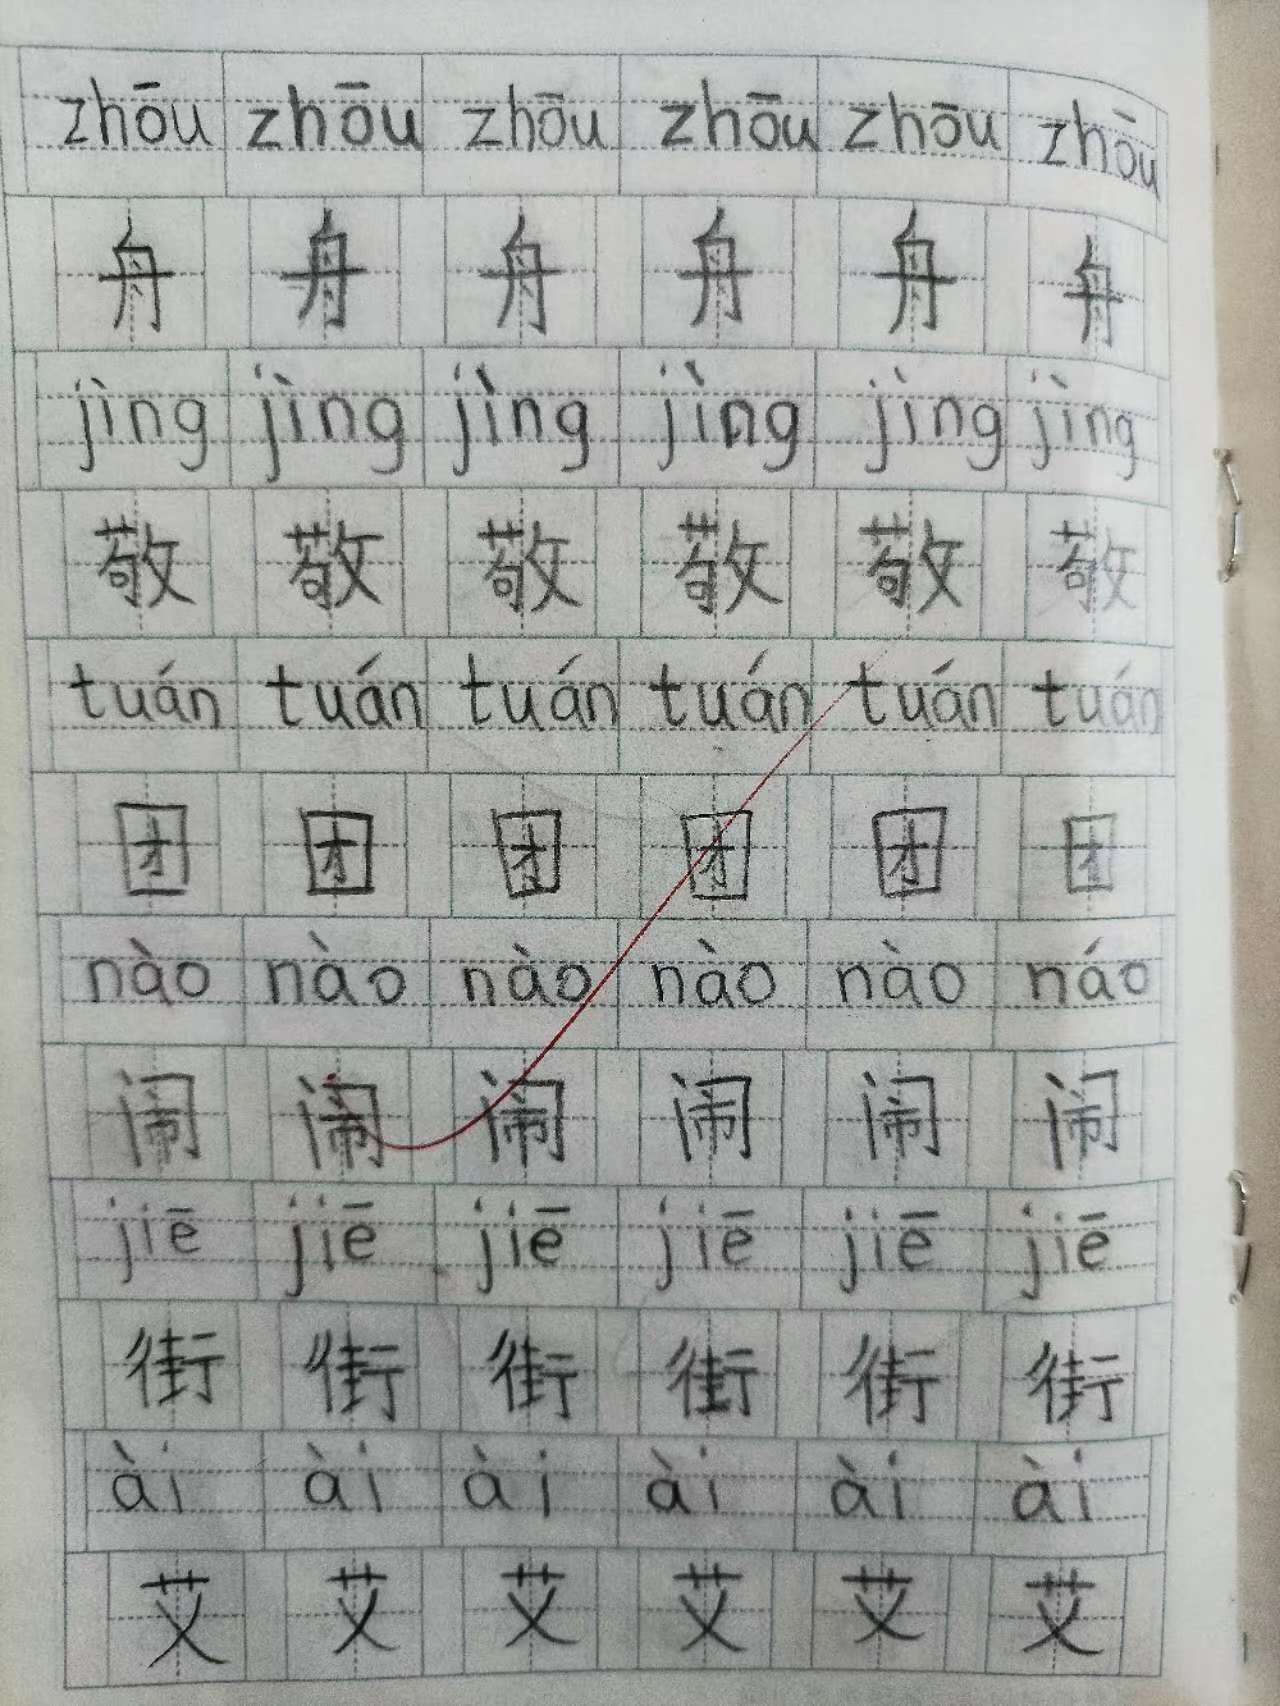 zhōu zhōu zhōu zhōu zhōu zhōu
舟 舟 舟 舟 舟 舟
jìng jìng jìng jìng jìng jìng
敬 敬 敬 敬 敬 敬
tuán tuán tuán tuán tuán tuán
团 团 团 团 团 团
nào nào nào nào nào náo
闹 闹 闹 闹 闹 闹
jiē jiē jiē jiē jiē jiē
街 街 街 街 街 街
ài ài ài ài ài ài
艾 艾 艾 艾 艾 艾